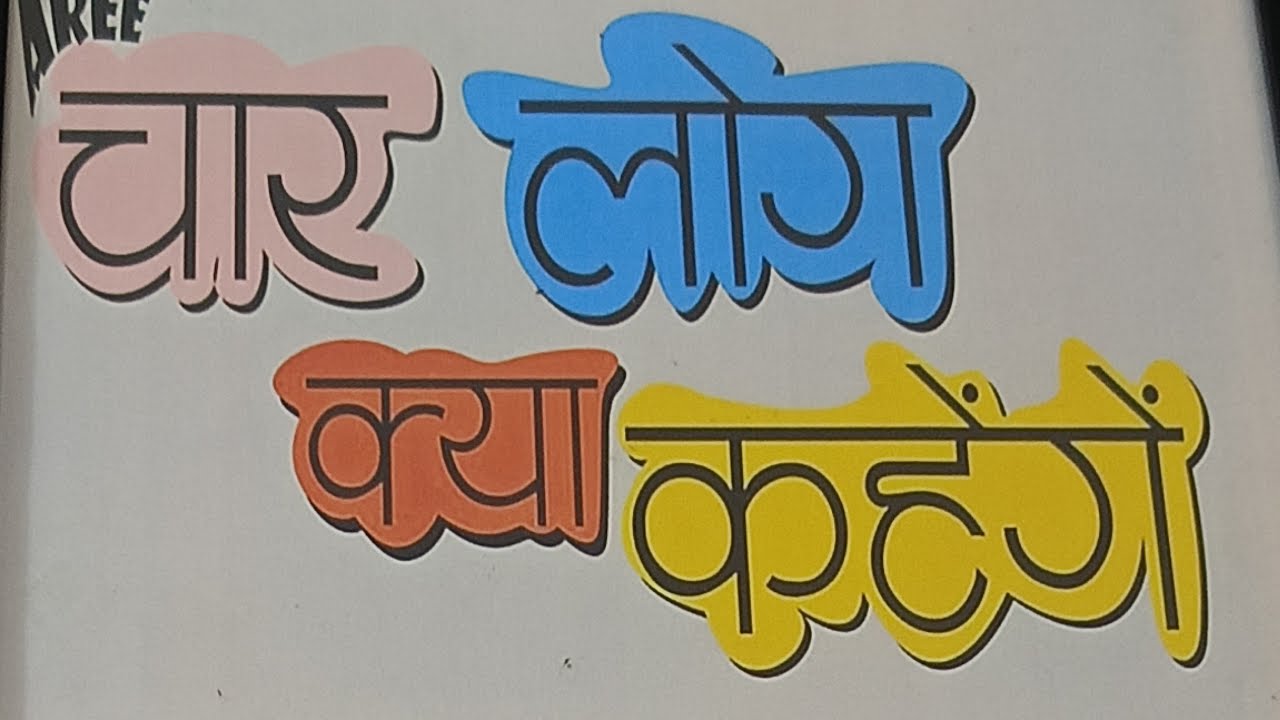 AREE
चार लोग
क्या कहेंगें